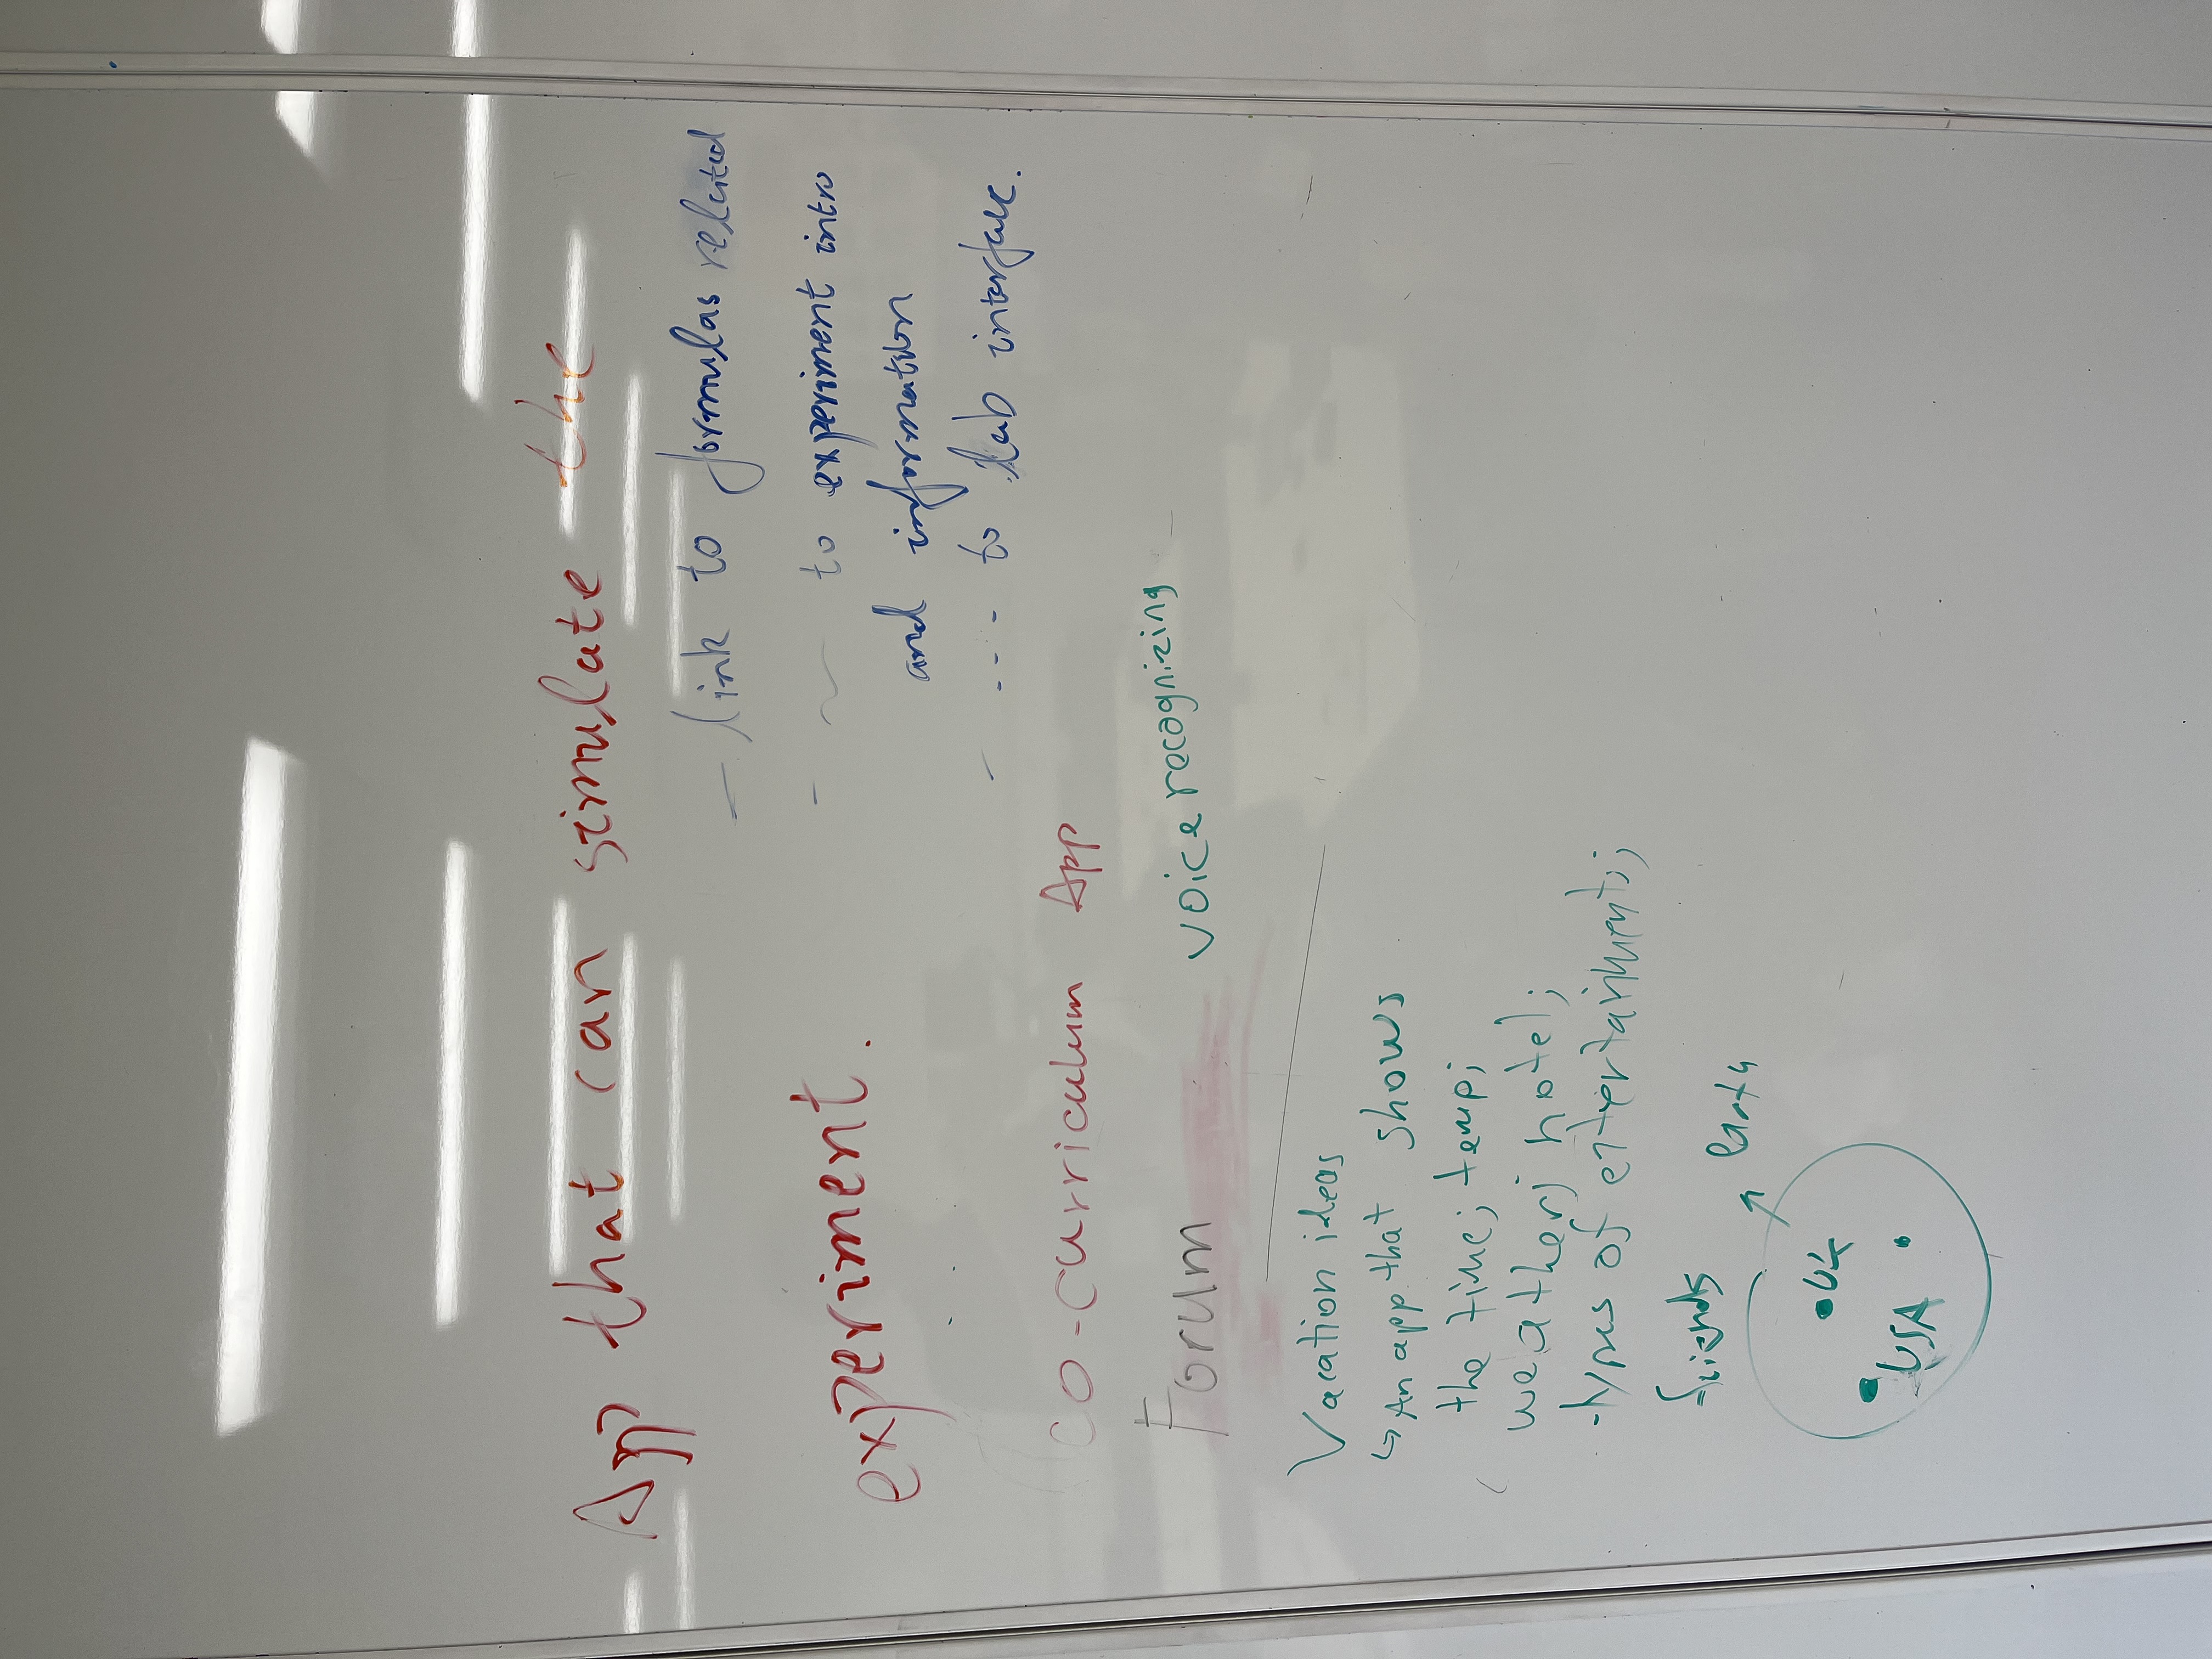 App that can simulate the
experiment.
- link to formulas related
- ~ to experiment intro
and information
- ---- to lab interface.
co-curriculum App
Forum voice recognizing
Vacation ideas
↳ An app that shows
the time; temp;
weather; hotel;
types of entertainment;
UK
USA